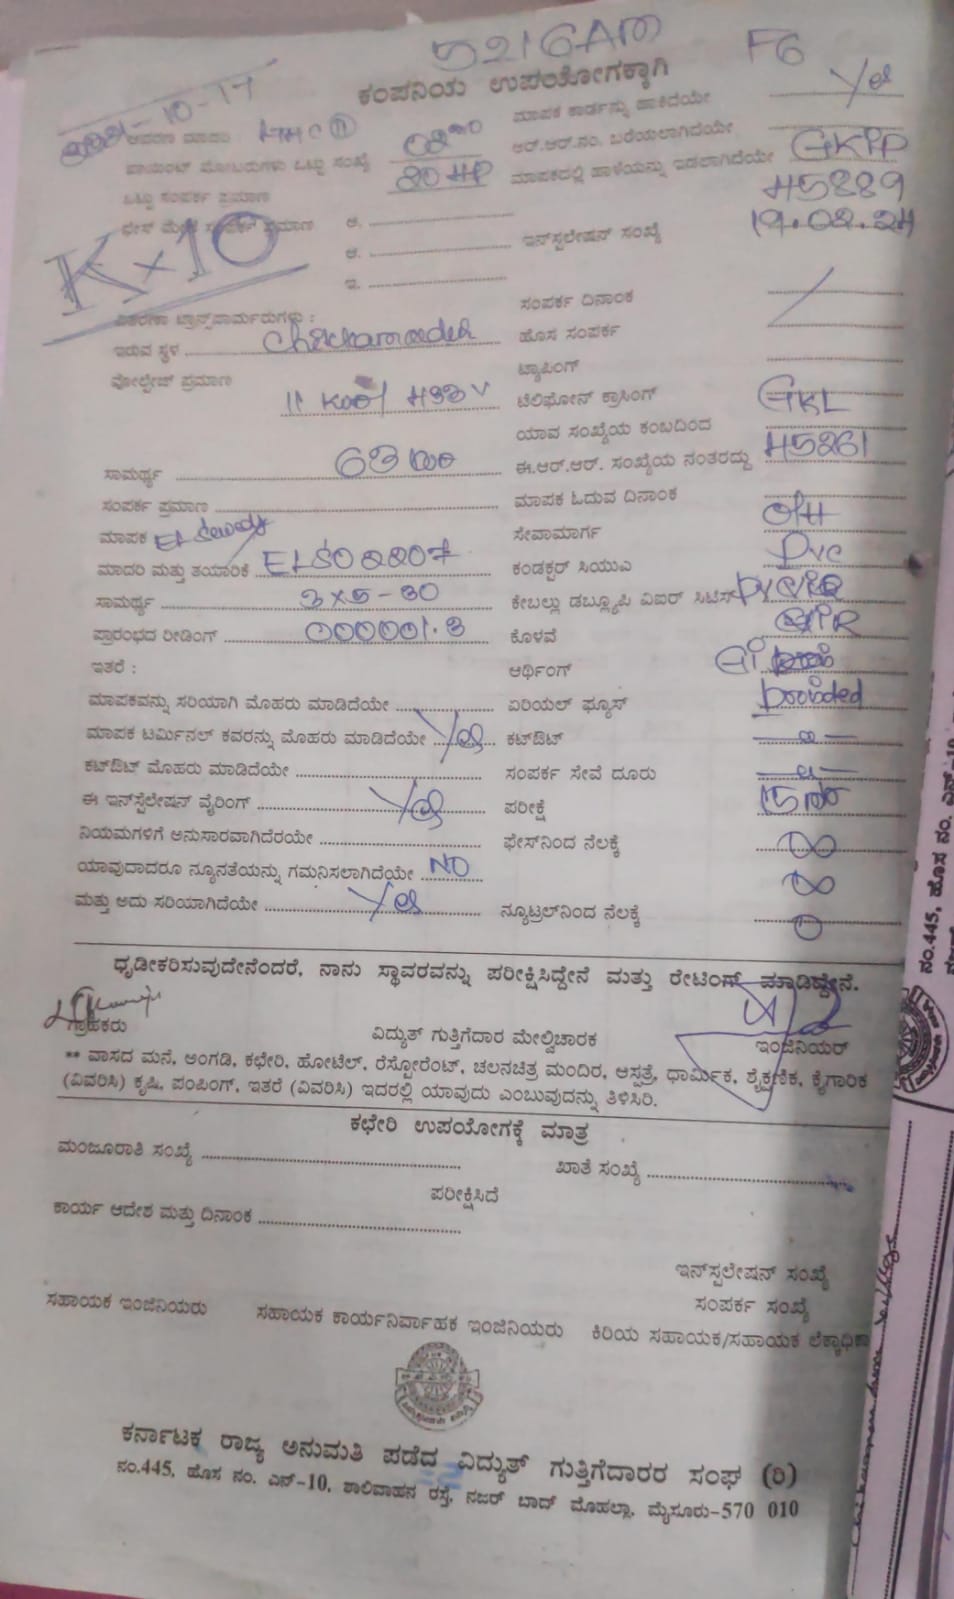 5216AM F6
ಕಂಪನಿಯ ಉಪಯೋಗಕ್ಕಾಗಿ
ಮಾಪಕ ಕಾರ್ಡನ್ನು ಹಾಕಿದೆಯೇ Yes
ಆರ್.ಆರ್.ನಂ. ಬರೆಯಲಾಗಿದೆಯೇ
ಪಾಯಿಂಟ್ ಮೋಟರುಗಳು ಒಟ್ಟು ಸಂಖ್ಯೆ
ಮಾಪಕದಲ್ಲಿ ಹಾಳೆಯನ್ನು ಇಡಲಾಗಿದೆಯೇ GKPP
ಒಟ್ಟು ಸಂಪರ್ಕ ಪ್ರಮಾಣ 20 HP
H5889
ಸಂಪರ್ಕ ಪ್ರಮಾಣ
ಇನ್‌ಸ್ಟಲೇಷನ್ ಸಂಖ್ಯೆ 19.02.24
K×10
ಸಂಪರ್ಕ ದಿನಾಂಕ
ವಿತರಣಾ ಟ್ರಾನ್ಸ್‌ಫಾರ್ಮರುಗಳು :
ಇರುವ ಸ್ಥಳ
ಹೊಸ ಸಂಪರ್ಕ
ವೋಲ್ಟೇಜ್ ಪ್ರಮಾಣ
ಟ್ಯಾಪಿಂಗ್
ಟೆಲಿಫೋನ್ ಕ್ರಾಸಿಂಗ್ GKL
ಯಾವ ಸಂಖ್ಯೆಯ ಕಂಬದಿಂದ
ಸಾಮರ್ಥ್ಯ
ಈ.ಆರ್.ಆರ್. ಸಂಖ್ಯೆಯ ನಂತರದ್ದು H5261
ಸಂಪರ್ಕ ಪ್ರಮಾಣ
ಮಾಪಕ ಓದುವ ದಿನಾಂಕ
ಮಾಪಕ
ಸೇವಾಮಾರ್ಗ O/H
ಮಾದರಿ ಮತ್ತು ತಯಾರಿಕೆ ELS02207
ಕಂಡಕ್ಟರ್ ಸಿಯುಎ PVC
ಸಾಮರ್ಥ್ಯ 3×5-30
ಕೇಬಲ್ಲು ಡಬ್ಲ್ಯೂಪಿ ವಿಐಆರ್ ಸಿಟಿಸ್
ಪ್ರಾರಂಭದ ರೀಡಿಂಗ್ 000001.3
ಕೊಳವೆ
ಇತರೆ :
ಆರ್ಥಿಂಗ್ GI
ಮಾಪಕವನ್ನು ಸರಿಯಾಗಿ ಮೊಹರು ಮಾಡಿದೆಯೇ
ಏರಿಯಲ್ ಫ್ಯೂಸ್
ಮಾಪಕ ಟರ್ಮಿನಲ್ ಕವರನ್ನು ಮೊಹರು ಮಾಡಿದೆಯೇ Yes
ಕಟ್ಔಟ್
ಕಟ್ಔಟ್ ಮೊಹರು ಮಾಡಿದೆಯೇ
ಸಂಪರ್ಕ ಸೇವೆ ದೂರು
ಈ ಇನ್‌ಸ್ಟೆಲೇಷನ್ ವೈರಿಂಗ್ Yes
ಪರೀಕ್ಷೆ
ನಿಯಮಗಳಿಗೆ ಅನುಸಾರವಾಗಿದೆರಯೇ
ಫೇಸ್‌ನಿಂದ ನೆಲಕ್ಕೆ ∞
ಯಾವುದಾದರೂ ನ್ಯೂನತೆಯನ್ನು ಗಮನಿಸಲಾಗಿದೆಯೇ NO
∞
ಮತ್ತು ಅದು ಸರಿಯಾಗಿದೆಯೇ Yes
ನ್ಯೂಟ್ರಲ್‌ನಿಂದ ನೆಲಕ್ಕೆ 0
ಧೃಡೀಕರಿಸುವುದೇನೆಂದರೆ, ನಾನು ಸ್ಥಾವರವನ್ನು ಪರೀಕ್ಷಿಸಿದ್ದೇನೆ ಮತ್ತು ರೇಟಿಂಗ್ ಮಾಡಿದ್ದೇನೆ.
ಗ್ರಾಹಕರು ವಿದ್ಯುತ್ ಗುತ್ತಿಗೆದಾರ ಮೇಲ್ವಿಚಾರಕ ಇಂಜಿನಿಯರ್
** ವಾಸದ ಮನೆ, ಅಂಗಡಿ, ಕಛೇರಿ, ಹೋಟೆಲ್, ರೆಸ್ಟೋರೆಂಟ್, ಚಲನಚಿತ್ರ ಮಂದಿರ, ಆಸ್ಪತ್ರೆ, ಧಾರ್ಮಿಕ, ಶೈಕ್ಷಣಿಕ, ಕೈಗಾರಿಕ
(ವಿವರಿಸಿ) ಕೃಷಿ, ಪಂಪಿಂಗ್, ಇತರೆ (ವಿವರಿಸಿ) ಇದರಲ್ಲಿ ಯಾವುದು ಎಂಬುವುದನ್ನು ತಿಳಿಸಿರಿ.
ಕಛೇರಿ ಉಪಯೋಗಕ್ಕೆ ಮಾತ್ರ
ಮಂಜೂರಾತಿ ಸಂಖ್ಯೆ
ಖಾತೆ ಸಂಖ್ಯೆ
ಪರೀಕ್ಷಿಸಿದೆ
ಕಾರ್ಯ ಆದೇಶ ಮತ್ತು ದಿನಾಂಕ
ಇನ್‌ಸ್ಟಲೇಷನ್ ಸಂಖ್ಯೆ
ಸಂಪರ್ಕ ಸಂಖ್ಯೆ
ಸಹಾಯಕ ಇಂಜಿನಿಯರು ಸಹಾಯಕ ಕಾರ್ಯನಿರ್ವಾಹಕ ಇಂಜಿನಿಯರು ಕಿರಿಯ ಸಹಾಯಕ/ಸಹಾಯಕ
ಕರ್ನಾಟಕ ರಾಜ್ಯ ಅನುಮತಿ ಪಡೆದ ವಿದ್ಯುತ್ ಗುತ್ತಿಗೆದಾರರ ಸಂಘ (ರಿ)
ನಂ.445, ಹೊಸ ನಂ. ಎನ್-10, ಶಾಲಿವಾಹನ ರಸ್ತೆ, ನಜರ್ ಬಾದ್ ಮೊಹಲ್ಲಾ, ಮೈಸೂರು-570 010
ನಂ.445, ಹೊಸ ನಂ. ಎನ್-10